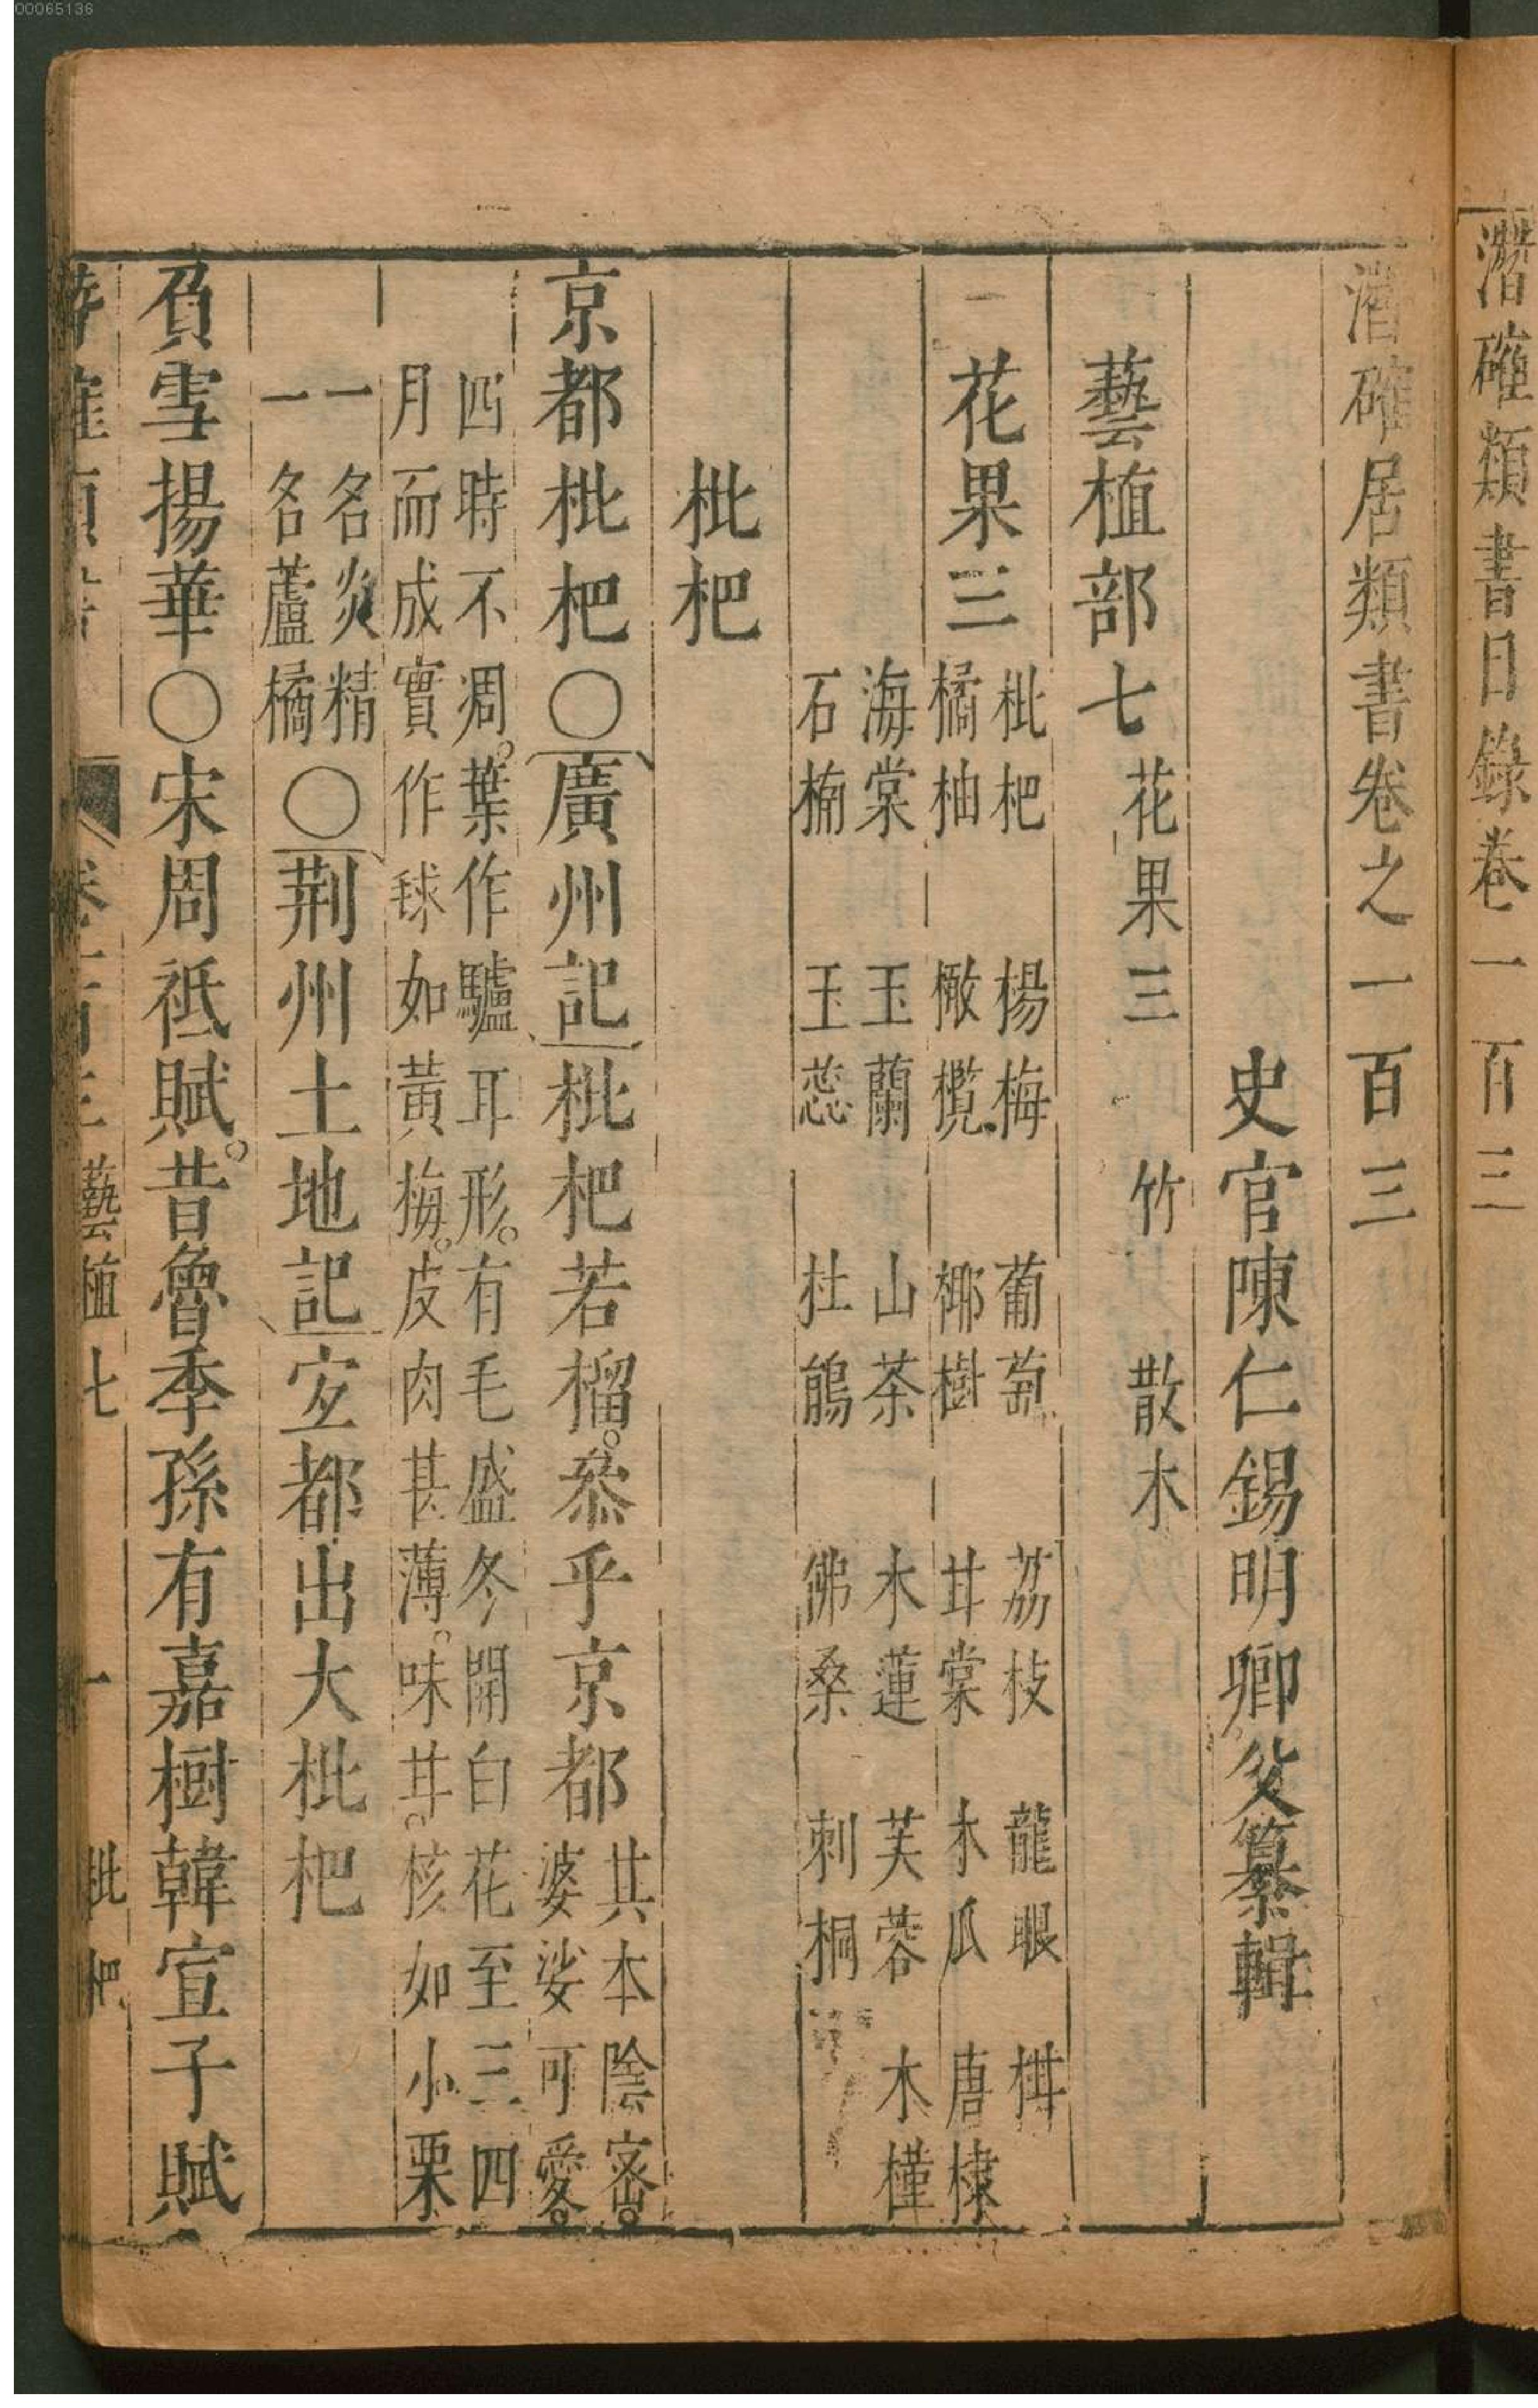 00065136
潛確類書目錄卷一百三
潛確居類書卷之一百三
史官陳仁錫明卿父纂輯
藝植部七 花果三 竹 散木
花果三 枇杷 楊梅 葡萄 荔枝 龍眼 栟
橘柚 橄欖 椰樹 甘棠 木瓜 唐棣
海棠 玉蘭 山茶 木蓮 芙蓉 木槿
石楠 玉蕊 杜鵑 佛桑 刺桐
枇杷
京都枇杷〇廣州記枇杷若榴。叅乎京都 其本陰密。
婆娑可愛。
四時不凋。葉作驢耳形。有毛盛冬開白花至三四
月而成實作毬如黃梅。皮肉甚薄。味甘。核如小栗
一名炎精
一名蘆橘〇荆州土地記宜都出大枇杷
負雪揚華〇宋周祗賦。昔魯季孫有嘉樹韓宣子賦
藝植七 一 枇杷